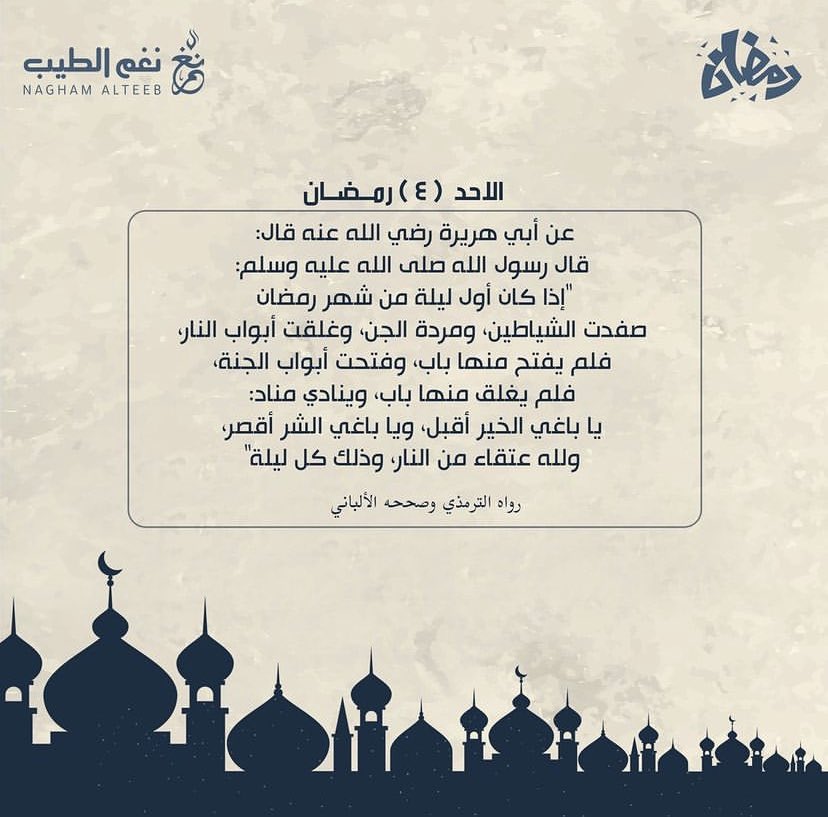 نغم الطيب
NAGHAM ALTEEB
نغم
رمضان
الاحد (٤) رمـضـان
عن أبي هريرة رضي الله عنه قال:
قال رسول الله صلى الله عليه وسلم:
"إذا كان أول ليلة من شهر رمضان
صفدت الشياطين، ومردة الجن، وغلقت أبواب النار،
فلم يفتح منها باب، وفتحت أبواب الجنة،
فلم يغلق منها باب، وينادي مناد:
يا باغي الخير أقبل، ويا باغي الشر أقصر،
ولله عتقاء من النار، وذلك كل ليلة"
رواه الترمذي وصححه الألباني